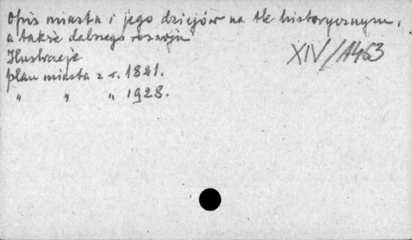 Opis miasta i jego dziejów na tle historycznym,
a także dalszego rozwoju
Ilustracje
XIV/1463
plan miasta z r. 1821.
" " " 1928.